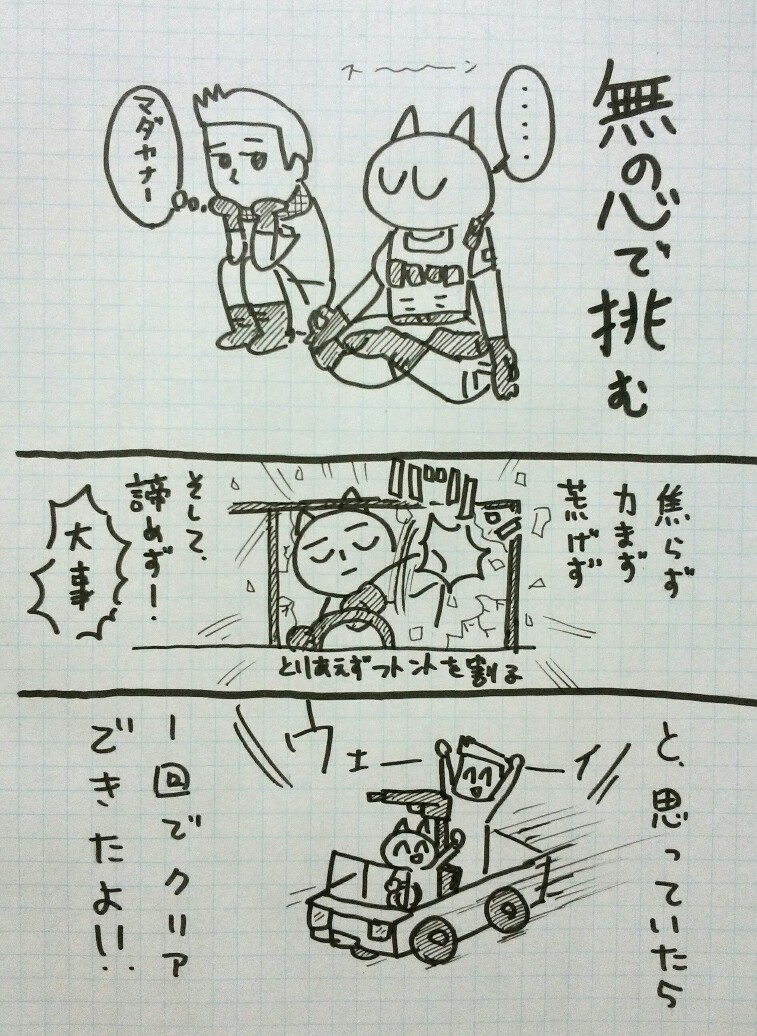 無の心で挑む
・・・・・
スーーン
マダカナー
焦らず
力まず
荒げず
そして、
諦めず！
大事
とりあえずフロントを割る
と、思っていたら
ウェーーイ
1回でクリア
できたよ!!